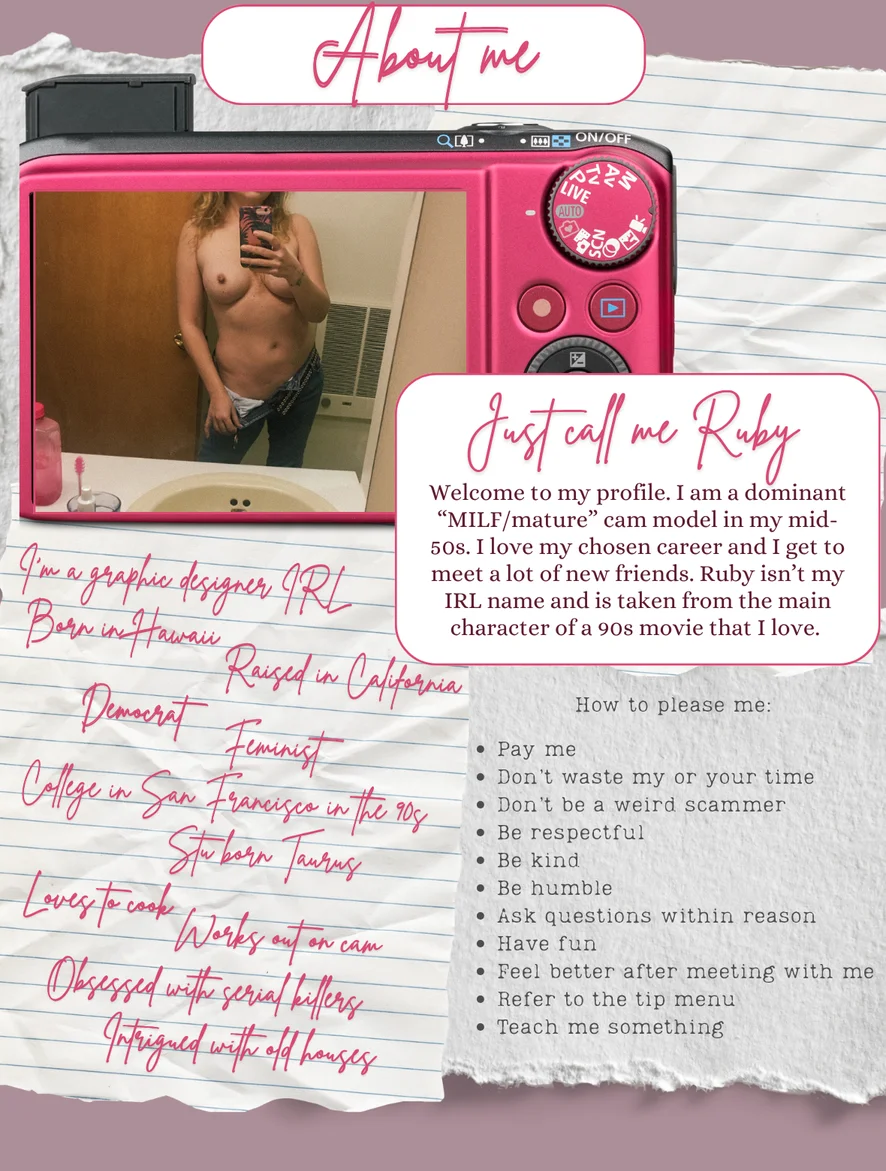 About me
ON/OFF
M
AV
TV
P
LIVE
AUTO
SCN
Just call me Ruby
Welcome to my profile. I am a dominant
“MILF/mature” cam model in my mid-
50s. I love my chosen career and I get to
meet a lot of new friends. Ruby isn’t my
IRL name and is taken from the main
character of a 90s movie that I love.
I'm a graphic designer IRL
Born in Hawaii
Raised in California
Democrat
Feminist
College in San Francisco in the 90s
Stuborn Taurus
Loves to cook
Works out on cam
Obsessed with serial killers
Intrigued with old houses
How to please me:
• Pay me
• Don't waste my or your time
• Don't be a weird scammer
• Be respectful
• Be kind
• Be humble
• Ask questions within reason
• Have fun
• Feel better after meeting with me
• Refer to the tip menu
• Teach me something